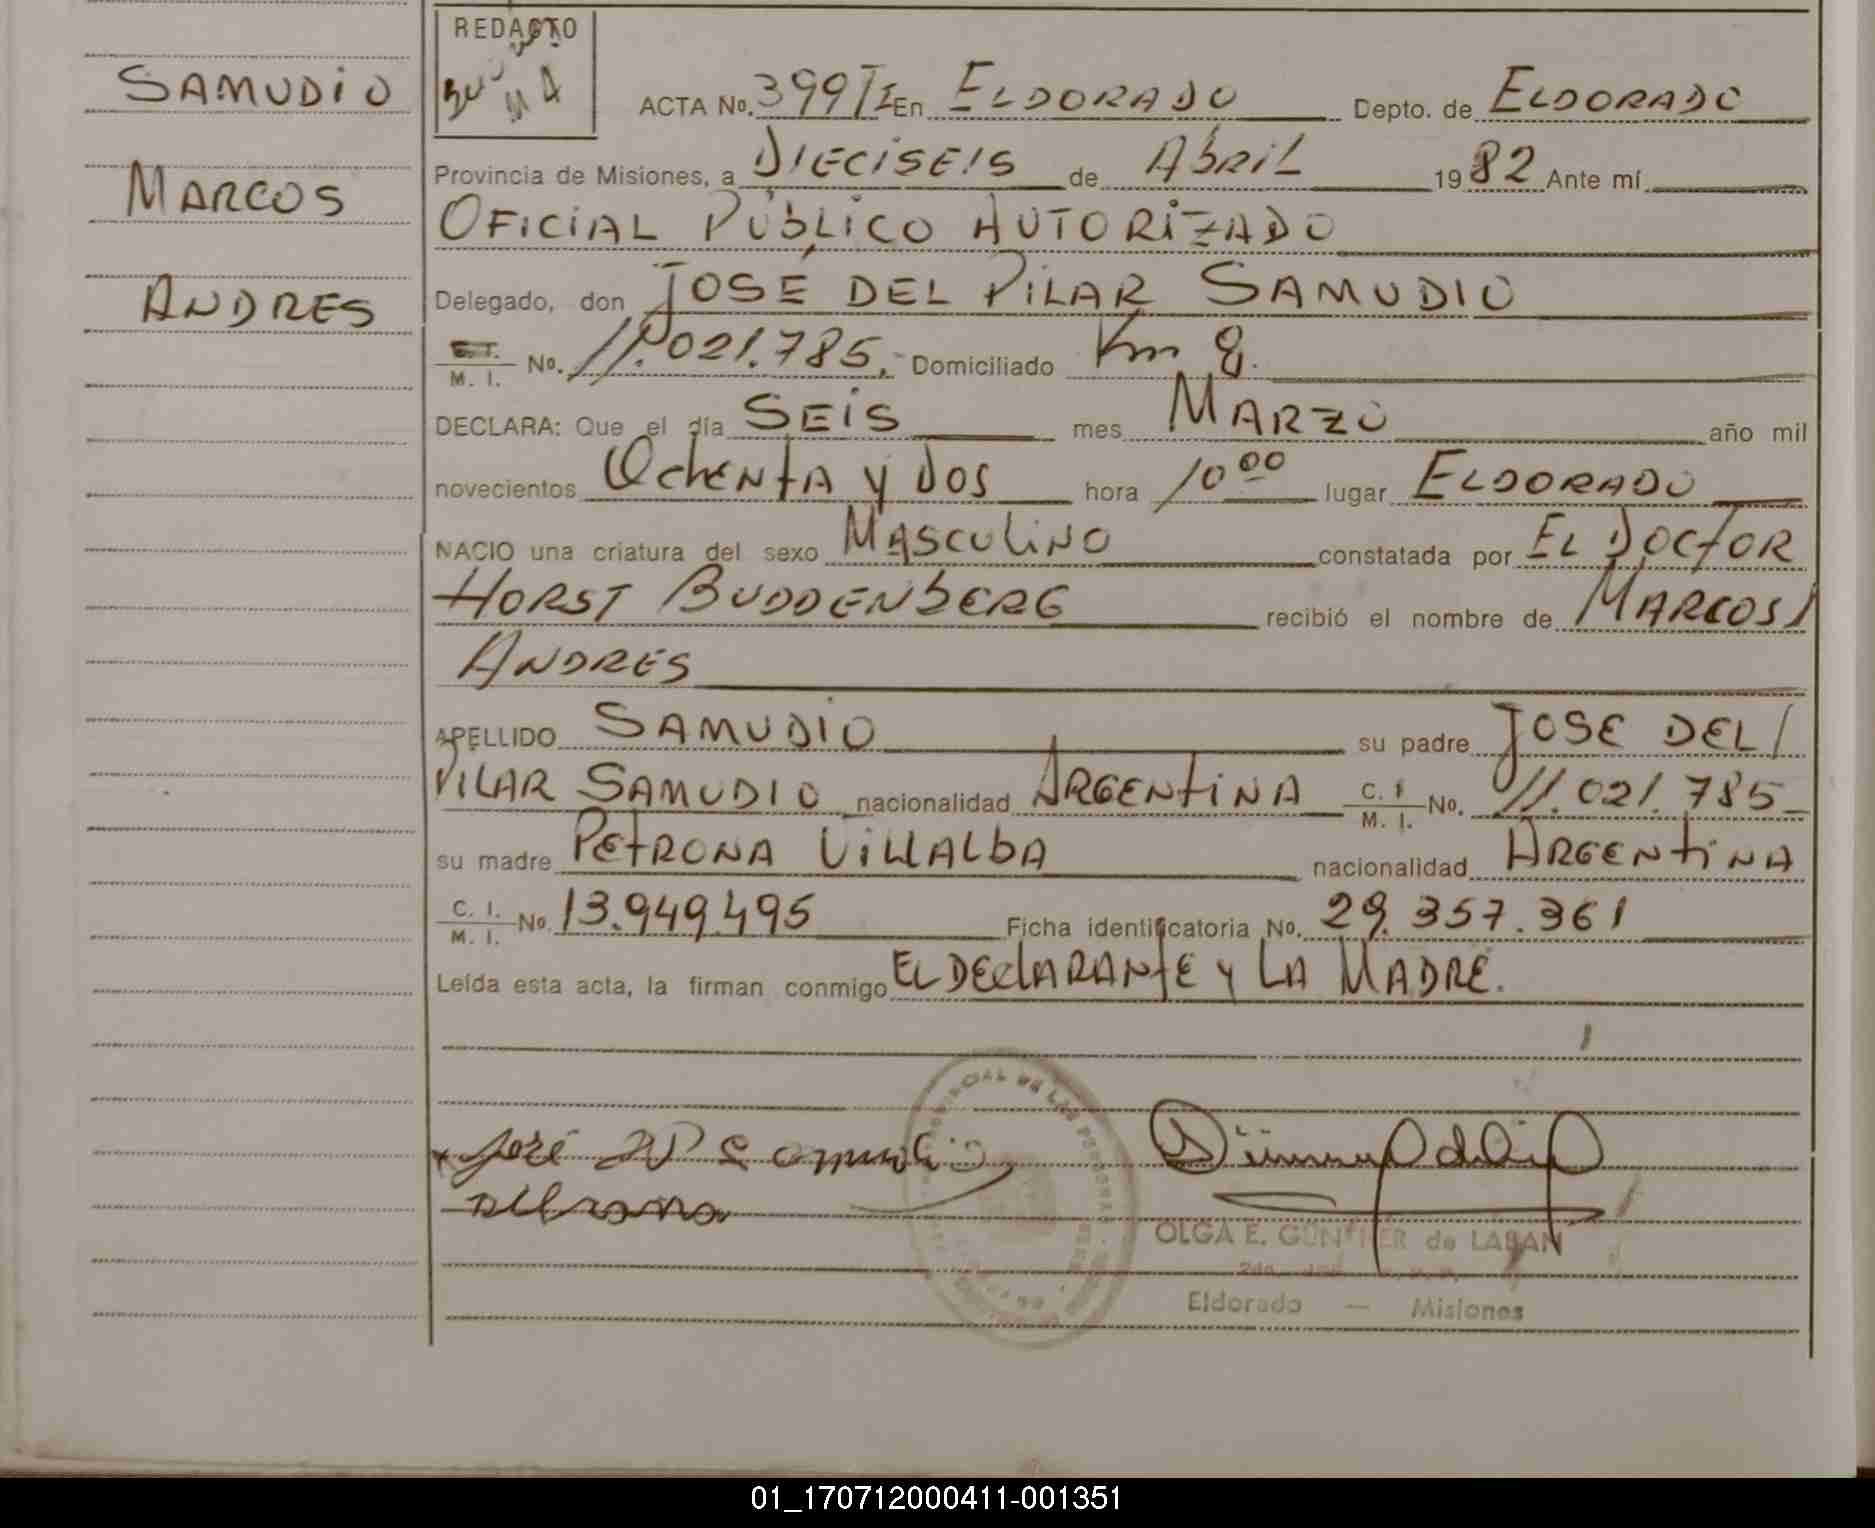 REDACTO
SAMUDIO
MARCOS
ANDRES
ACTA No. 399 TI En ELDORADO Depto. de ELDORADO
Provincia de Misiones, a DIECISEIS de ABRIL 1982 Ante mí
OFICIAL PÚBLICO AUTORIZADO
Delegado, don JOSÉ DEL PILAR SAMUDIO
C. I. M. I. No. 11.021.785, Domiciliado Km 8.
DECLARA: Que el día SEIS mes MARZO año mil
novecientos OCHENTA y DOS hora 10 00 lugar ELDORADO
NACIO una criatura del sexo MASCULINO constatada por EL DOCTOR
HORST BUDDENBERG recibió el nombre de MARCOS/
ANDRES
APELLIDO SAMUDIO su padre JOSE DEL/
PILAR SAMUDIO nacionalidad ARGENTINA C. I. M. I. No. 11.021.785
su madre PETRONA VILLALBA nacionalidad ARGENTINA
C. I. M. I. No. 13.949.495 Ficha identificatoria No. 29.357.361
Leída esta acta, la firman conmigo EL DECLARANTE y LA MADRE.
José D P Samudio
OLGA E. GÜNTHER de LABAN
Eldorado — Misiones
01_170712000411-001351